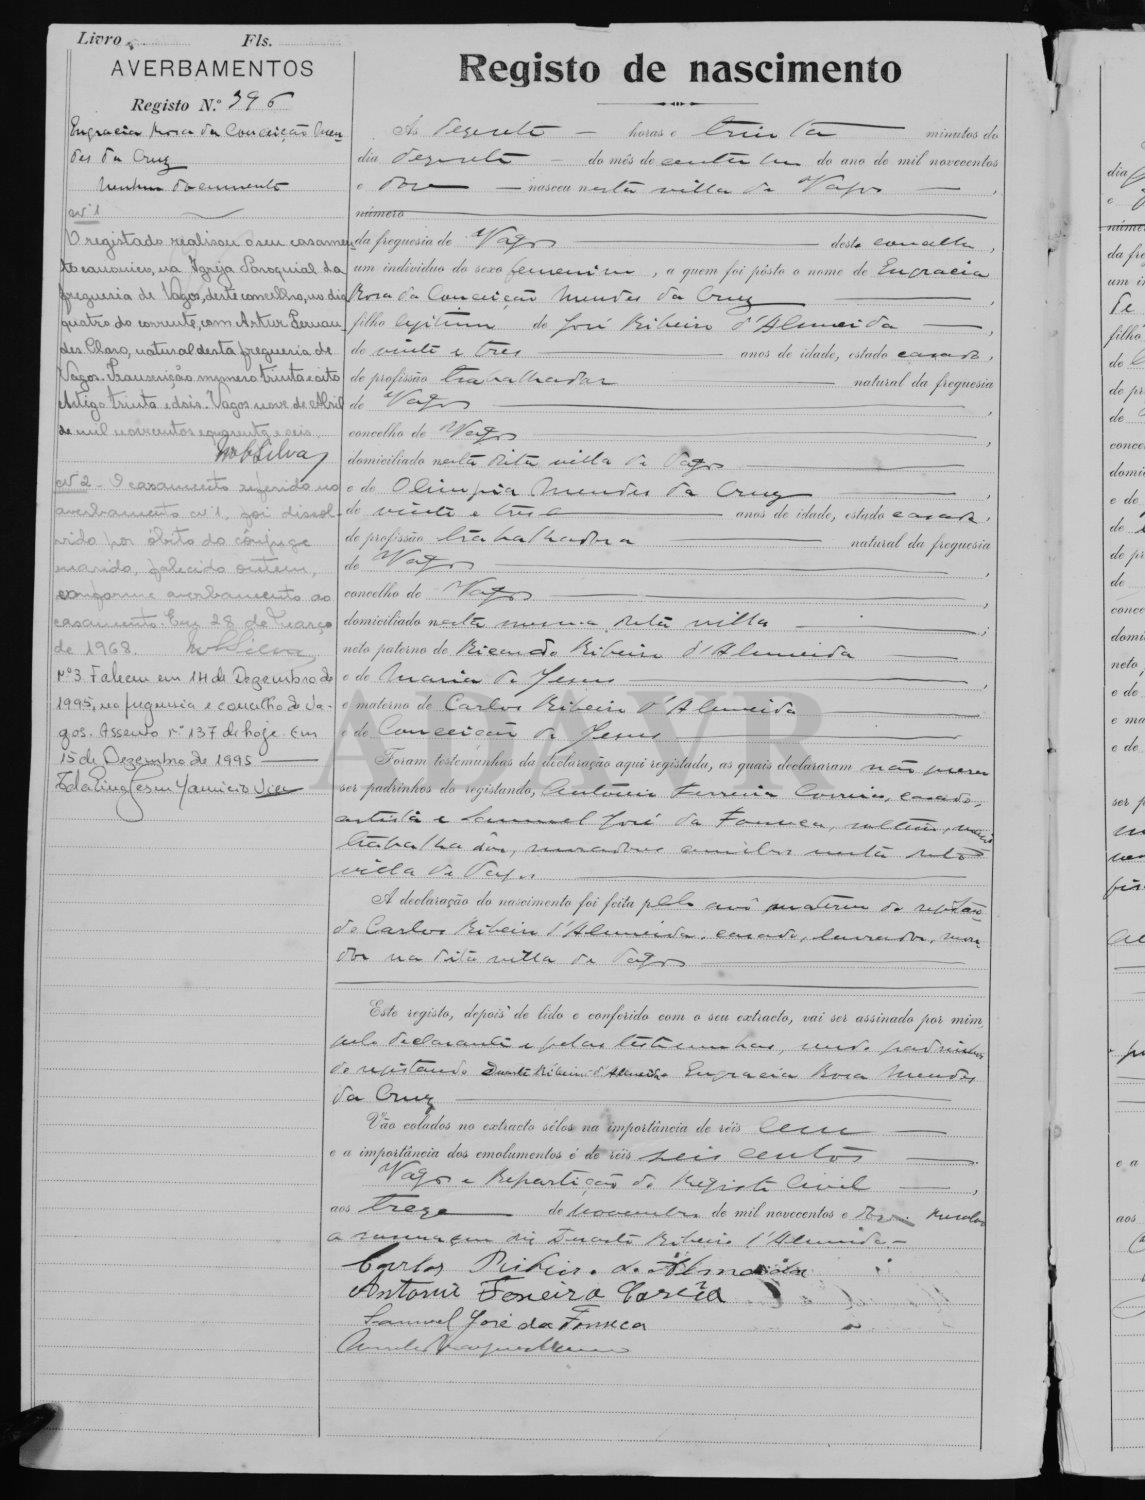 Livro Fls.
AVERBAMENTOS
Registo N.º 396
Engracia Rosa da Conceição Men-
des da Cruz
Nenhum documento
nº 1
O registado realisou o seu casamen-
to canonico, na Igreja Paroquial da
freguesia de Vagos, deste concelho, no dia
quatro do corrente, com Artur Fernan-
des Claro, natural desta freguesia de
Vagos. Transcrição numero trinta e oito
Artigo trinta e dois. Vagos nove de Abril
de mil novecentos e quarenta e seis.
Silva
nº 2 - O casamento referido no
averbamento nº 1, foi dissol-
vido por obito do cônjuge
marido, falecido ontem,
conforme averbamento ao
casamento. Em 28 de Março
de 1968. Silva
Nº 3 Faleceu em 14 de Dezembro de
1995, na freguesia e concelho de Va-
gos. Assento nº 137 de hoje. Em
15 de Dezembro de 1995
Registo de nascimento
Às dezasete horas e trinta minutos do
dia dezasete do mês de outubro do ano de mil novecentos
e doze nasceu nesta villa de Vagos
número
da freguesia de Vagos deste concelho,
um individuo do sexo femenino, a quem foi pôsto o nome de Engracia
Rosa da Conceição Mendes da Cruz
filho legitimo de José Ribeiro d'Almeida
de vinte e tres anos de idade, estado casado,
de profissão trabalhador natural da freguesia
de Vagos
concelho de Vagos
domiciliado nesta dita villa de Vagos
e de Olimpia Mendes da Cruz
de vinte e tres anos de idade, estado casada,
de profissão trabalhadora natural da freguesia
de Vagos
concelho de Vagos
domiciliado nesta mesma dita villa
neto paterno de Ricardo Ribeiro d'Almeida
e de Maria de Jesus
e materno de Carlos Ribeiro d'Almeida
e de Conceição de Jesus
Foram testemunhas da declaração aqui registada, as quais declararam não querer
ser padrinhos do registando, António Ferreira Correia, casado,
artista e Samuel José da Fonseca, solteiro, maior
trabalhador, moradores ambos nesta dita
villa de Vagos
A declaração do nascimento foi feita pelo avô materno do registan-
do Carlos Ribeiro d'Almeida, casado, lavrador, mora-
dor na dita villa de Vagos
Este registo, depois de lido e conferido com o seu extracto, vai ser assinado por mim,
pelo declarante e pelas testemunhas, sendo padrinhos
do registando Duarte Ribeiro d'Almeida e Engracia Rosa Mendes
da Cruz
Vão colados no extracto sêlos na importância de réis cem
e a importância dos emolumentos é de réis seis centos
Vagos e Repartição do Registo Civil
aos treze de Novembro de mil novecentos e doze. Resalvo
Duarte Ribeiro d'Almeida.
Carlos Ribeiro de Almeida
Antonio Ferreira Correia
Samuel José da Fonseca
ADAVR